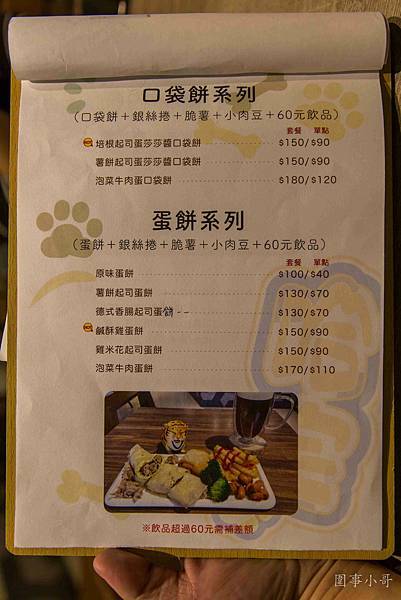 口袋餅系列
(口袋餅＋銀絲捲＋脆薯＋小肉豆＋60元飲品)
套餐 單點
培根起司蛋莎莎醬口袋餅 $150/$90
薯餅起司蛋莎莎醬口袋餅 $150/$90
泡菜牛肉蛋口袋餅 $180/$120
蛋餅系列
(蛋餅＋銀絲捲＋脆薯＋小肉豆＋60元飲品)
套餐 單點
原味蛋餅 $100/$40
薯餅起司蛋餅 $130/$70
德式香腸起司蛋餅 $130/$70
鹹酥雞蛋餅 $150/$90
雞米花起司蛋餅 $150/$90
泡菜牛肉蛋餅 $170/$110
※飲品超過60元需補差額
圍事小哥